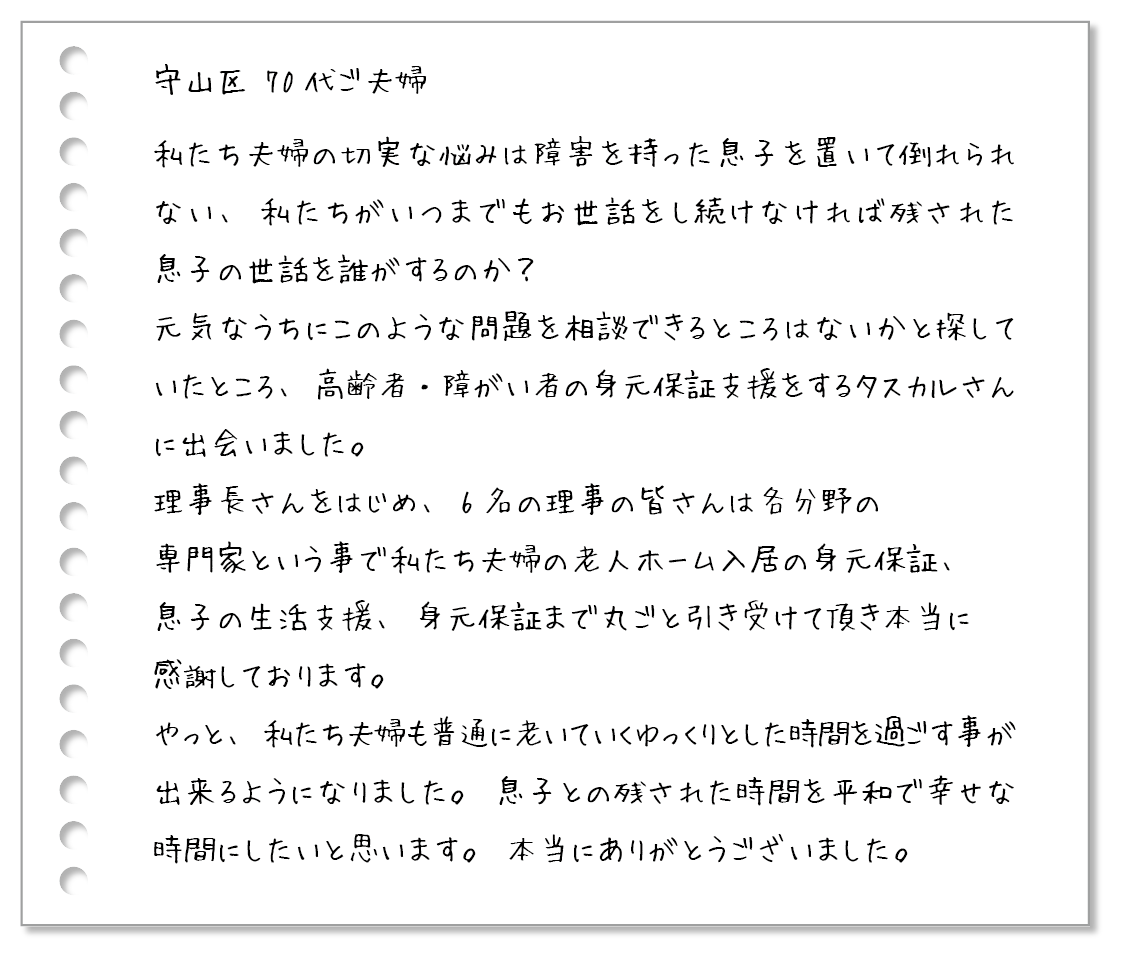 守山区 70代ご夫婦
私たち夫婦の切実な悩みは障害を持った息子を置いて倒れられ
ない、私たちがいつまでもお世話をし続けなければ残された
息子の世話を誰がするのか？
元気なうちにこのような問題を相談できるところはないかと探して
いたところ、高齢者・障がい者の身元保証支援をするタスカルさん
に出会いました。
理事長さんをはじめ、6名の理事の皆さんは各分野の
専門家という事で私たち夫婦の老人ホーム入居の身元保証、
息子の生活支援、身元保証まで丸ごと引き受けて頂き本当に
感謝しております。
やっと、私たち夫婦も普通に老いていくゆっくりとした時間を過ごす事が
出来るようになりました。息子との残された時間を平和で幸せな
時間にしたいと思います。本当にありがとうございました。